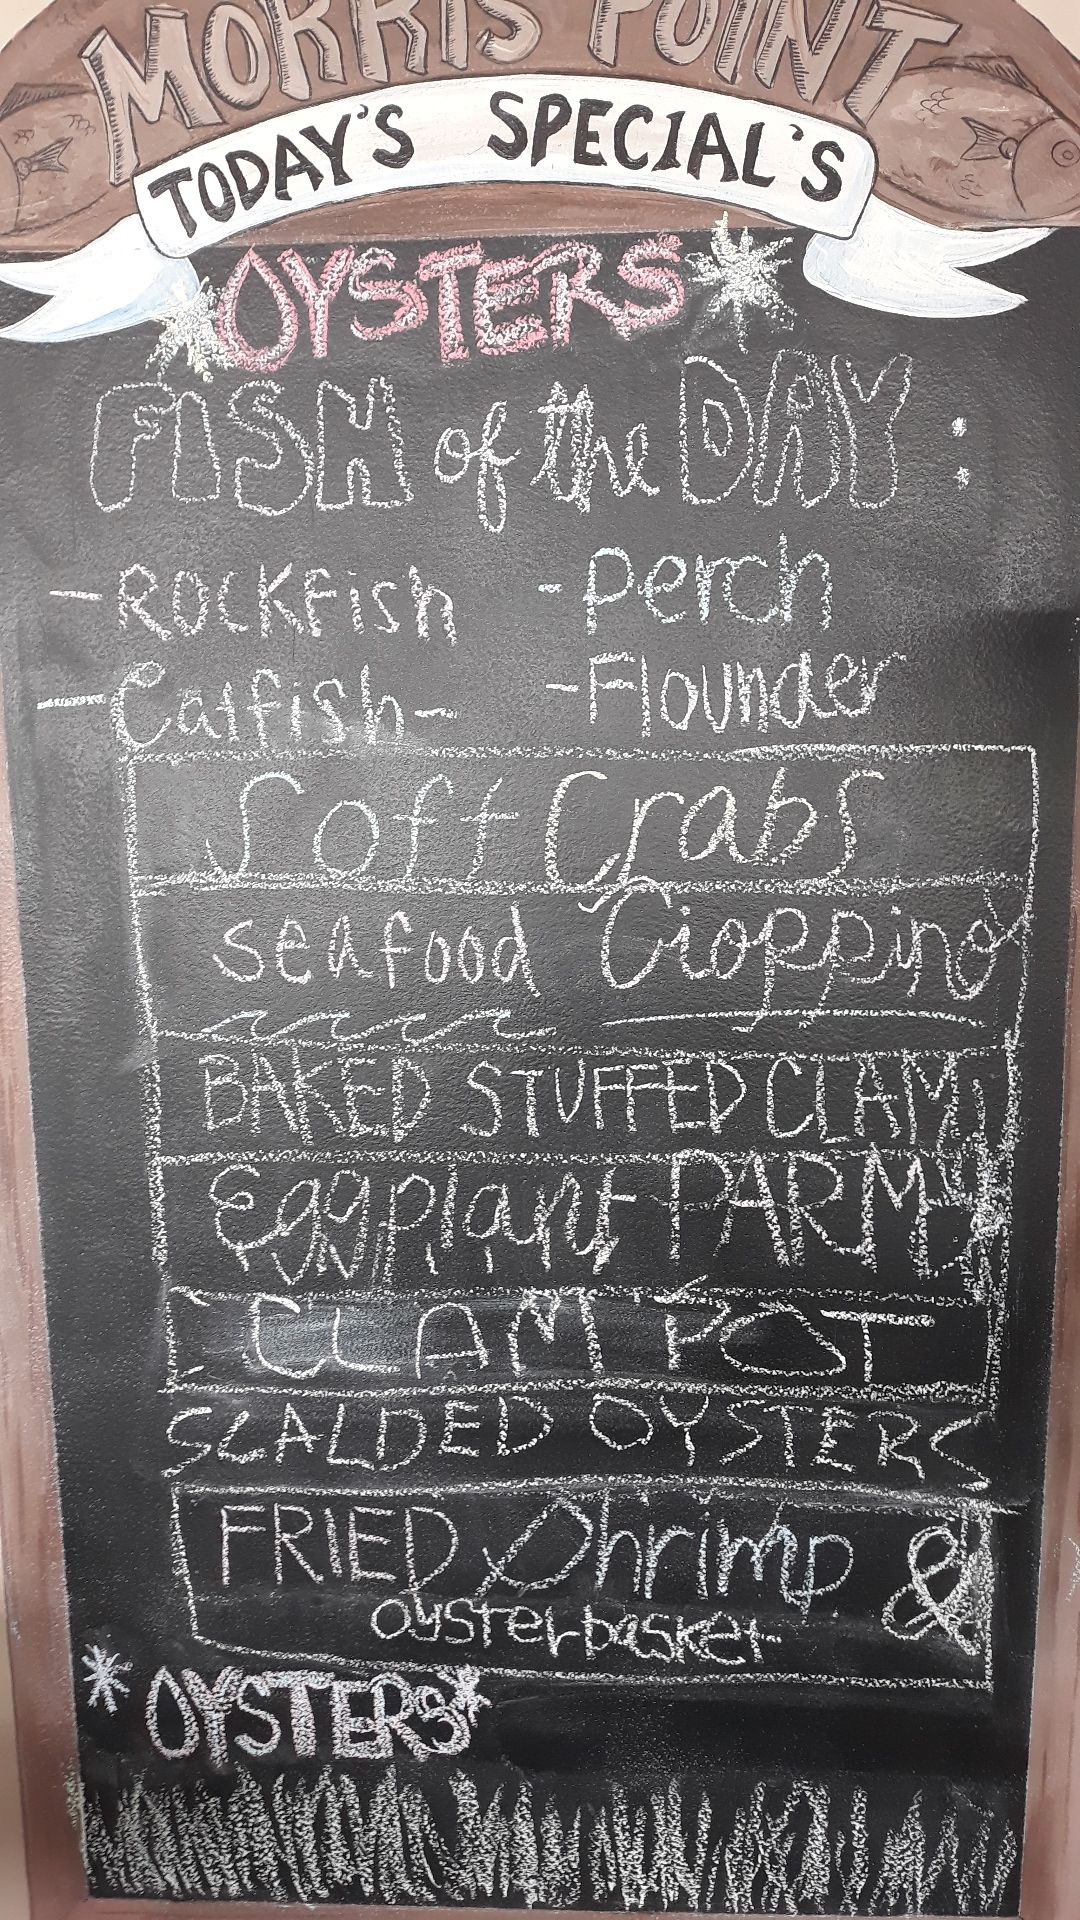 MORRIS POINT
TODAY'S SPECIAL'S
OYSTERS
FISH of the DAY :
- ROCKFish - perch
- Catfish - - Flounder
Soft Crabs
seafood Cioppino
BAKED STUFFED CLAM
Eggplant PARM
CLAM POT
SCALDED OYSTERS
FRIED Shrimp &
oyster basket
* OYSTERS *